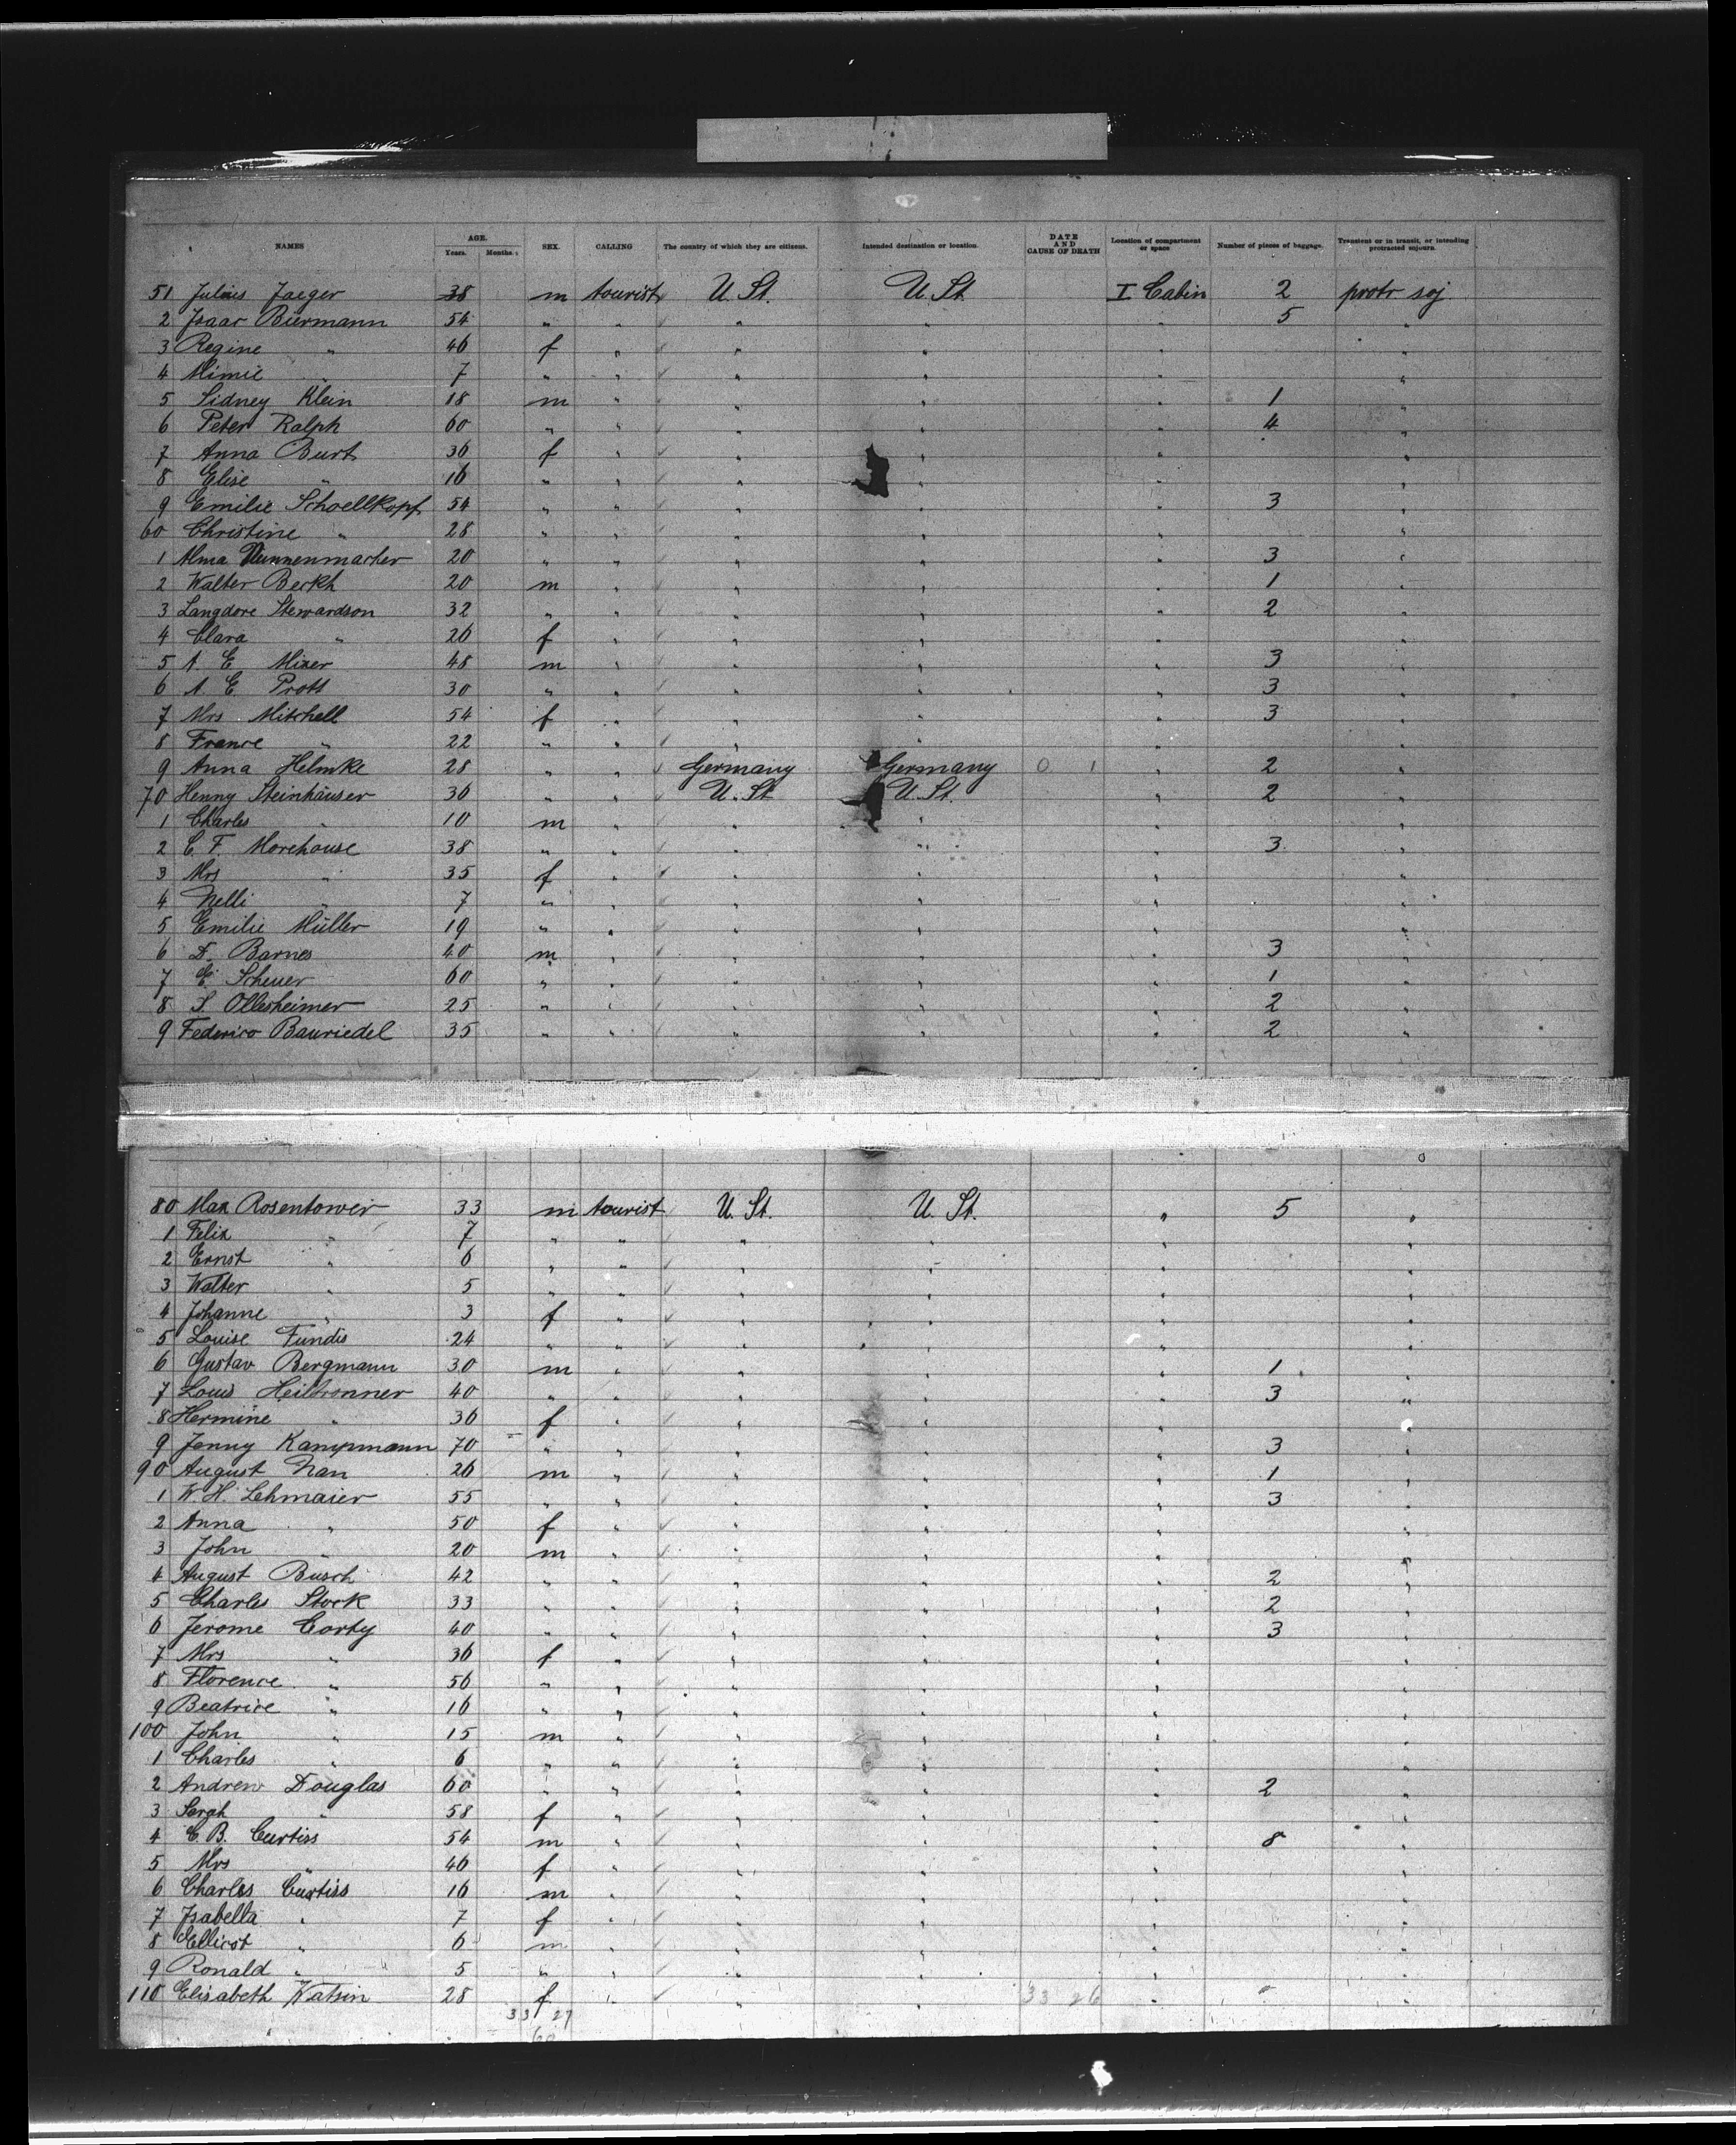 NAMES AGE. Years. Months. SEX. CALLING The country of which they are citizens. Intended destination or location. DATE AND CAUSE OF DEATH Location of compartment or space Number of pieces of baggage. Transient or in transit, or intending protracted sojourn.
51 Julius Jaeger 38 m tourist U. St. U. St. I Cabin 2 protr soj
2 Isaac Biermann 54 " " " " " 5 "
3 Regine " 46 f " " " " "
4 Mimie " 7 " " " " " "
5 Sidney Klein 18 m " " " " 1 "
6 Peter Ralph 60 " " " " " 4 "
7 Anna Burt 36 f " " " " "
8 Elise " 16 " " " " " "
9 Emilie Schoellkopf 54 " " " " " 3 "
60 Christine " 28 " " " " " "
1 Alma Nunnenmacher 20 " " " " " 3 "
2 Walter Beckh 20 m " " " " 1 "
3 Langdore Stewardson 32 " " " " " 2 "
4 Clara " 26 f " " " " "
5 A. E. Mixer 48 m " " " " 3 "
6 A. E. Pratt 30 " " " " " 3 "
7 Mrs Mitchell 54 f " " " " 3 "
8 France " 22 " " " " " "
9 Anna Helmke 28 " " Germany Germany 0 1 " 2 "
70 Henny Steinhäuser 36 " " U. St. U. St. " 2 "
1 Charles " 10 m " " " " "
2 C. F. Morehouse 38 " " " " " 3 "
3 Mrs " 35 f " " " " "
4 Nelli " 7 " " " " " "
5 Emilie Müller 19 " " " " " "
6 D. Barnes 40 m " " " " 3 "
7 E. Scheuer 60 " " " " " 1 "
8 S. Ollesheimer 25 " " " " " 2 "
9 Federico Bauriedel 35 " " " " " 2 "
80 Max Rosentower 33 m tourist U. St. U. St. " 5 "
1 Felix " 7 " " " " " "
2 Ernst " 6 " " " " " "
3 Walter " 5 " " " " " "
4 Johanne " 3 f " " " " "
5 Louise Fundis 24 " " " " " "
6 Gustav Bergmann 30 m " " " " 1 "
7 Louis Heilbronner 40 " " " " " 3 "
8 Hermine " 36 f " " " " "
9 Jenny Kampmann 70 " " " " " 3 "
90 August Nan 26 m " " " " 1 "
1 W. H. Lehmaier 55 " " " " " 3 "
2 Anna " 50 f " " " " "
3 John " 20 m " " " " "
4 August Busch 42 " " " " " 2 "
5 Charles Stock 33 " " " " " 2 "
6 Jerome Corty 40 " " " " " 3 "
7 Mrs " 36 f " " " " "
8 Florence " 56 " " " " " "
9 Beatrice " 16 " " " " " "
100 John " 15 m " " " " "
1 Charles " 6 " " " " " "
2 Andrew Douglas 60 " " " " " 2 "
3 Sarah " 58 f " " " " "
4 C. B. Curtiss 54 m " " " " 8 "
5 Mrs " 46 f " " " " "
6 Charles Curtiss 16 m " " " " "
7 Isabella " 7 f " " " " "
8 Ellicot " 6 m " " " " "
9 Ronald " 5 " " " " " "
110 Elisabeth Watsin 28 f " " " 33 26 " " "
33 27
60